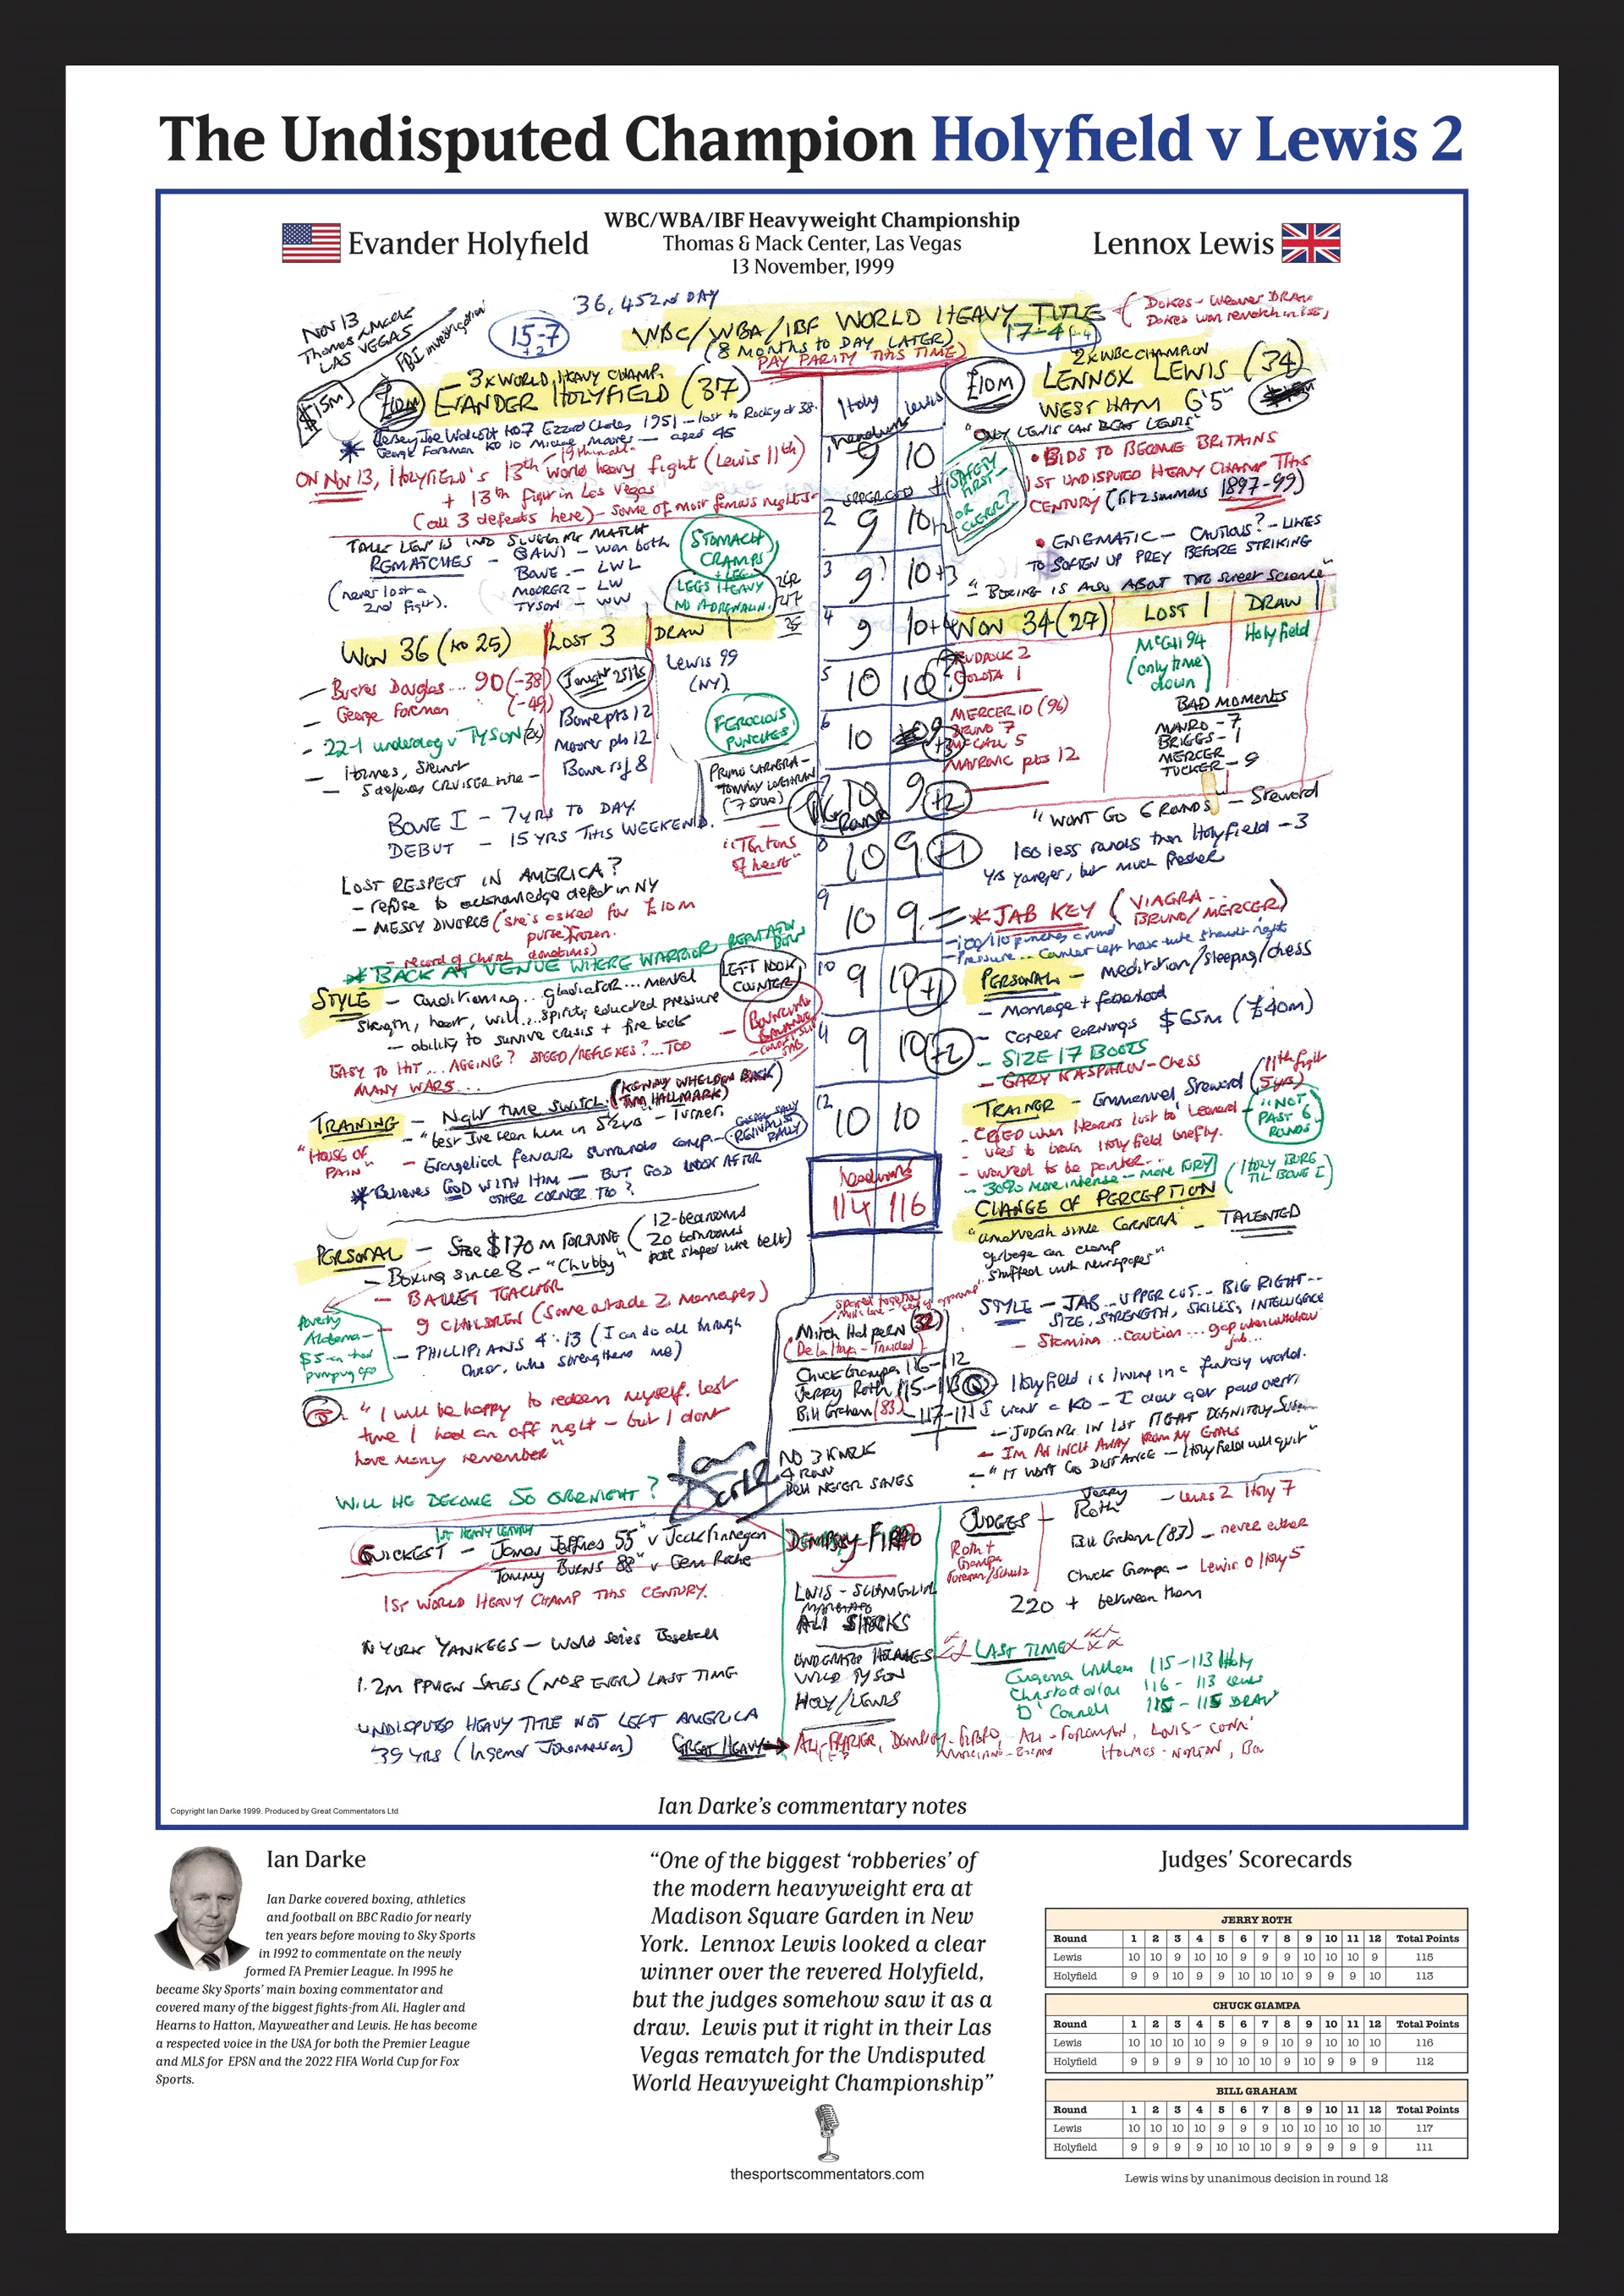 The Undisputed Champion Holyfield v Lewis 2
WBC/WBA/IBF Heavyweight Championship
Evander Holyfield
Thomas & Mack Center, Las Vegas
Lennox Lewis
13 November, 1999
36,452nd DAY
NOV 13
Thomas & Mack
LAS VEGAS
FBI investigation
15-7
+2
WBC/WBA/IBF WORLD HEAVY TITLE
(8 MONTHS TO DAY LATER)
PAY PARITY THIS TIME)
17-4
Dokes - Weaver DRAW
Dokes won rematch
$15M
£10M
3x WORLD HEAVY CHAMP.
EVANDER HOLYFIELD (37)
Jersey Joe Walcott KO7 Ezzard Charles 1951 - lost to Rocky at 38.
George Foreman KO 10 Michael Moorer - aged 45
ON NOV 13, HOLYFIELD'S 13th world heavy fight (Lewis 11th)
+ 13th fight in Las Vegas
(all 3 defeats here) - some of most famous nights
TALK LEWIS INTO SLUGGING MATCH
REMATCHES - (QAWI) - won both
BOWE - LWL
MOORER - LW
TYSON - WW
(never lost a
2nd fight).
STOMACH
CRAMPS
+ LEG
LEGS HEAVY
NO ADRENALIN.
WON 36 (KO 25)
LOST 3
DRAW 1
Buster Douglas... 90 (-38)
George Foreman (-49)
22-1 underdog v TYSON (2x)
Holmes, Stewart
5 defences CRUISER title -
Bowe pts 12
Moorer pts 12
Bowe rsf 8
Lewis 99
(NY)
FEROCIOUS
PUNCHES
PRIMO CARNERA -
TOMMY LOUGHRAN
BOWE I - 7 YRS TO DAY.
DEBUT - 15 YRS THIS WEEKEND.
"Ten tons
of heart"
LOST RESPECT IN AMERICA?
- refuse to acknowledge defeat in NY
- MESSY DIVORCE (she's asked for £10m
purse frozen.
- record of church donations)
* BACK AT VENUE WHERE WARRIOR REPUTATION
STYLE - conditioning... gladiator... mental
strength, heart, will... spirit, educated pressure
- ability to survive crisis + fire back
LEFT HOOK
COUNTER
EASY TO HIT... AGEING? SPEED/REFLEXES?... TOO
MANY WARS...
BOUNCING
BALANCE
TRAINING - NIGHT TIME SWITCH
(TIM HALLMARK)
- "best I've seen him in 5 yrs - Turner.
"HOUSE OF
PAIN"
- Evangelical fervour surrounds camp -
REVIVALIST
RALLY
* Believes GOD WITH HIM - BUT GOD LOOK AFTER
OTHER CORNER TOO?
PERSONAL - Size $170 M FORTUNE (12-bedrooms
20 bathrooms
pool shaped like belt)
- Boxing since 8 - "Chubby"
- BALLET TEACHER
- 9 CHILDREN (some outside 2 Marriages)
- PHILLIPIANS 4:13 (I can do all through
Christ, who strengthens me)
Poverty
Alabama -
$5 an hour
pumping gas
"I will be happy to redeem myself. Last
time I had an off night - but I dont
have many remember"
WILL HE BECOME SO OVERNIGHT?
Holy
Lewis
1 9 10
2 9 10 +2
3 9? 10 +3
4 9 10 +4
5 10 10
6 10 9 +3
7 10 9 +2
8 10 9 +1
9 10 9 =
10 9 10 +1
11 9 10 +2
12 10 10
114 116
SAFETY
FIRST -
OR
CLEVER?
£10M
2x WBC CHAMPION
LENNOX LEWIS (34)
WEST HAM 6'5"
"ONLY LEWIS CAN BEAT LEWIS"
• BIDS TO BECOME BRITAINS
1ST UNDISPUTED HEAVY CHAMP THIS
CENTURY (Fitzsimmons 1897-99)
• ENIGMATIC - CAUTIOUS? - LIKES
TO SOFTEN UP PREY BEFORE STRIKING
- "BOXING IS ALSO ABOUT THE sweet science"
WON 34 (27)
LOST 1
DRAW 1
RUDDOCK 2
GOLOTA 1
MERCER 10 (96)
BRUNO 7
McCALL 5
MAVROVIC pts 12
McCall 94
(only time
down)
Holyfield
BAD MOMENTS
BRUNO - 7
BRIGGS - 1
MERCER
TUCKER - 9
"WON'T GO 6 ROUNDS" - Steward
100 less rounds than Holyfield - 3
yrs younger, but much fresher
* JAB KEY (VIAGRA -
BRUNO/MERCER)
- 100/110 punches a round
PERSONAL - meditation/sleeping/chess
- Marriage + fatherhood
- career earnings $65m (£40m)
- SIZE 17 BOOTS
- GARY KASPAROV - chess
TRAINER - Emmanuel Steward (11th fight
5 yrs)
- CRIED when Hearns lost to Leonard
- used to train Holyfield briefly.
- wanted to be painter...
- 30% more intense - more FURY
"NOT
PAST 6
ROUNDS"
(HOLY BURG
TIL BOWE I)
CHANGE OF PERCEPTION
- TALENTED
garbage can champ
stuffed with newspaper"
STYLE - JAB... UPPER CUT... BIG RIGHT...
SIZE, STRENGTH, SKILLS, INTELLIGENCE
- Stamina... caution...
Mitch Halpern (32)
(De la Hoya - Trinidad)
Chuck Giampa 116-112
Jerry Roth 115-113
Bill Graham (83) - 117-111
NO 3 KNOCK
BELL NEVER SAVES
Holyfield is living in a fantasy world.
I want a KO - I dont get paid overt.
- JUDGING IN 1ST FIGHT DEFINITELY
- IM AN INCH AWAY FROM MY GOALS
- "IT WONT GO DISTANCE - Holyfield will quit"
1ST HEAVY
QUICKEST - James Jeffries 55" v Jack Finnegan
Tommy Burns 88" v Gem Roche
1ST WORLD HEAVY CHAMP THIS CENTURY.
N YORK YANKEES - World Series Baseball
1.2m PPVIEW SALES (NO 8 EVER) LAST TIME
UNDISPUTED HEAVY TITLE NOT LEFT AMERICA
39 YRS (Ingemar Johannsson)
GREAT HEAVY
DEMPSEY FIRPO
LOUIS - SCHMELING
ALI SPINKS
HOLY/LEWIS
ALI-FRAZIER, Dempsey-FIRPO, ALI-FOREMAN, LOUIS-CONN
HOLMES-NORTON
JUDGES -
Jerry
Roth - Lewis 2 Holy 7
Bill Graham (83) - never either
Chuck Giampa - Lewis 0 Holy 5
220 + between them
LAST TIME
Eugenia Williams 115-113 Holy
Christodolou 116-113 Lewis
O'Connell 115-115 DRAW
Copyright Ian Darke 1999. Produced by Great Commentators Ltd
Ian Darke's commentary notes
Ian Darke
Ian Darke covered boxing, athletics
and football on BBC Radio for nearly
ten years before moving to Sky Sports
in 1992 to commentate on the newly
formed FA Premier League. In 1995 he
became Sky Sports' main boxing commentator and
covered many of the biggest fights-from Ali, Hagler and
Hearns to Hatton, Mayweather and Lewis. He has become
a respected voice in the USA for both the Premier League
and MLS for EPSN and the 2022 FIFA World Cup for Fox
Sports.
"One of the biggest 'robberies' of
the modern heavyweight era at
Madison Square Garden in New
York. Lennox Lewis looked a clear
winner over the revered Holyfield,
but the judges somehow saw it as a
draw. Lewis put it right in their Las
Vegas rematch for the Undisputed
World Heavyweight Championship"
thesportscommentators.com
Judges' Scorecards
JERRY ROTH
Round 1 2 3 4 5 6 7 8 9 10 11 12 Total Points
Lewis 10 10 9 10 10 9 9 9 10 10 10 9 115
Holyfield 9 9 10 9 9 10 10 10 9 9 9 10 113
CHUCK GIAMPA
Round 1 2 3 4 5 6 7 8 9 10 11 12 Total Points
Lewis 10 10 10 10 9 9 9 10 9 10 10 10 116
Holyfield 9 9 9 9 10 10 10 9 10 9 9 9 112
BILL GRAHAM
Round 1 2 3 4 5 6 7 8 9 10 11 12 Total Points
Lewis 10 10 10 10 9 9 9 10 10 10 10 10 117
Holyfield 9 9 9 9 10 10 10 9 9 9 9 9 111
Lewis wins by unanimous decision in round 12